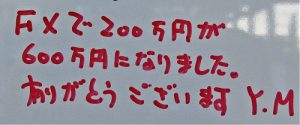 FXで200万円が
600万円になりました。
ありがとうございます Y.M